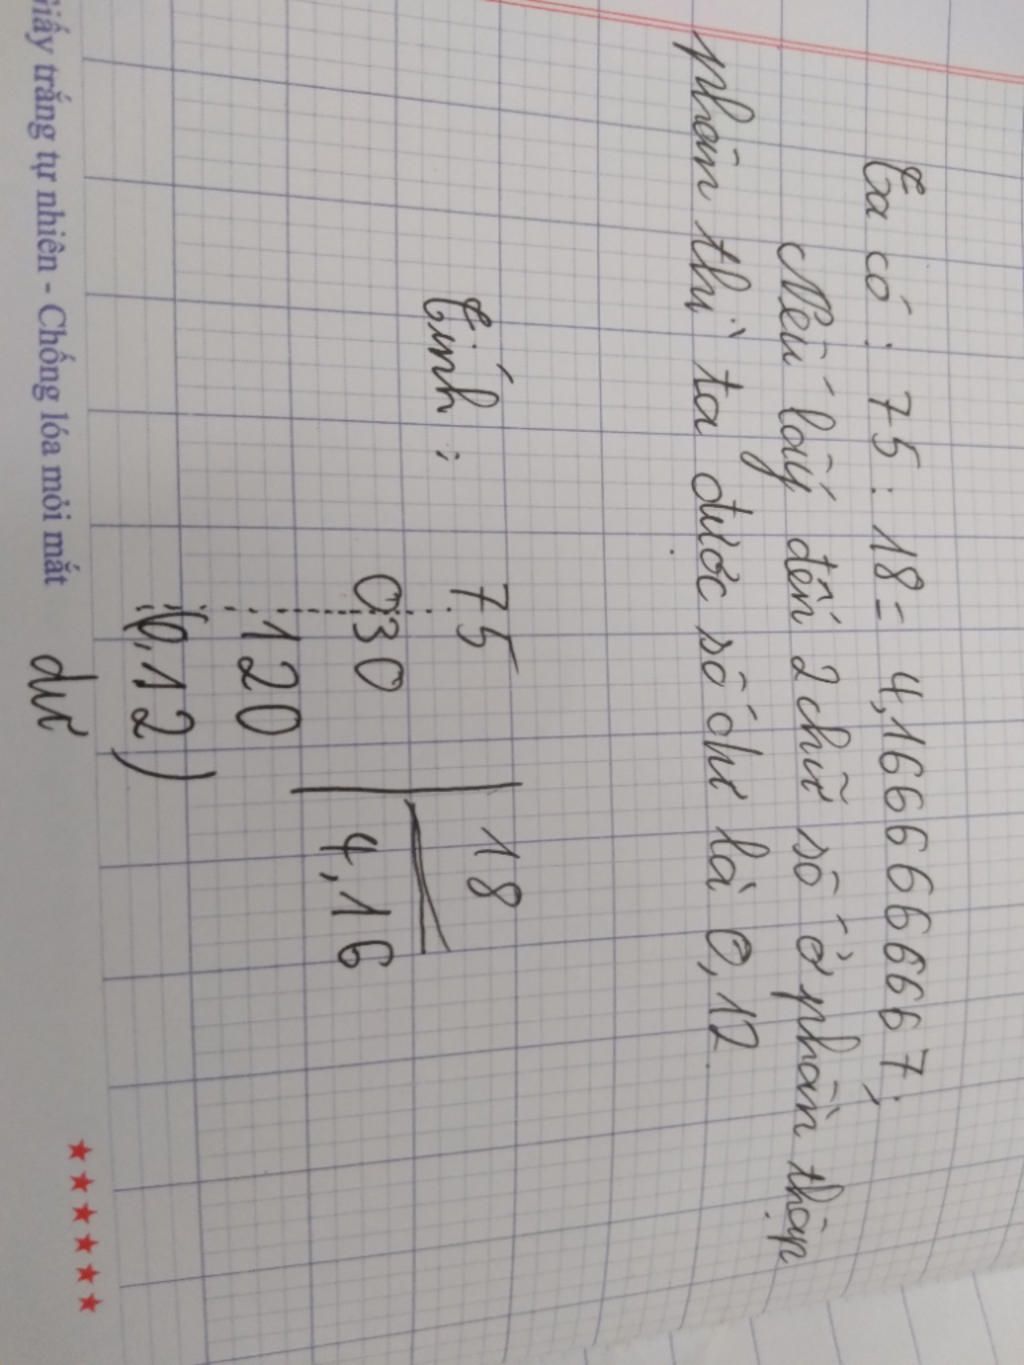 Ta có : 75 : 18 = 4,1666666667;
Nếu lấy đến 2 chữ số ở phần thập
phân thì ta được số dư là 0,12.
Tính :
75 18
030 4,16
120
(0,12)
dư
Giấy trắng tự nhiên - Chống lóa mỏi mắt